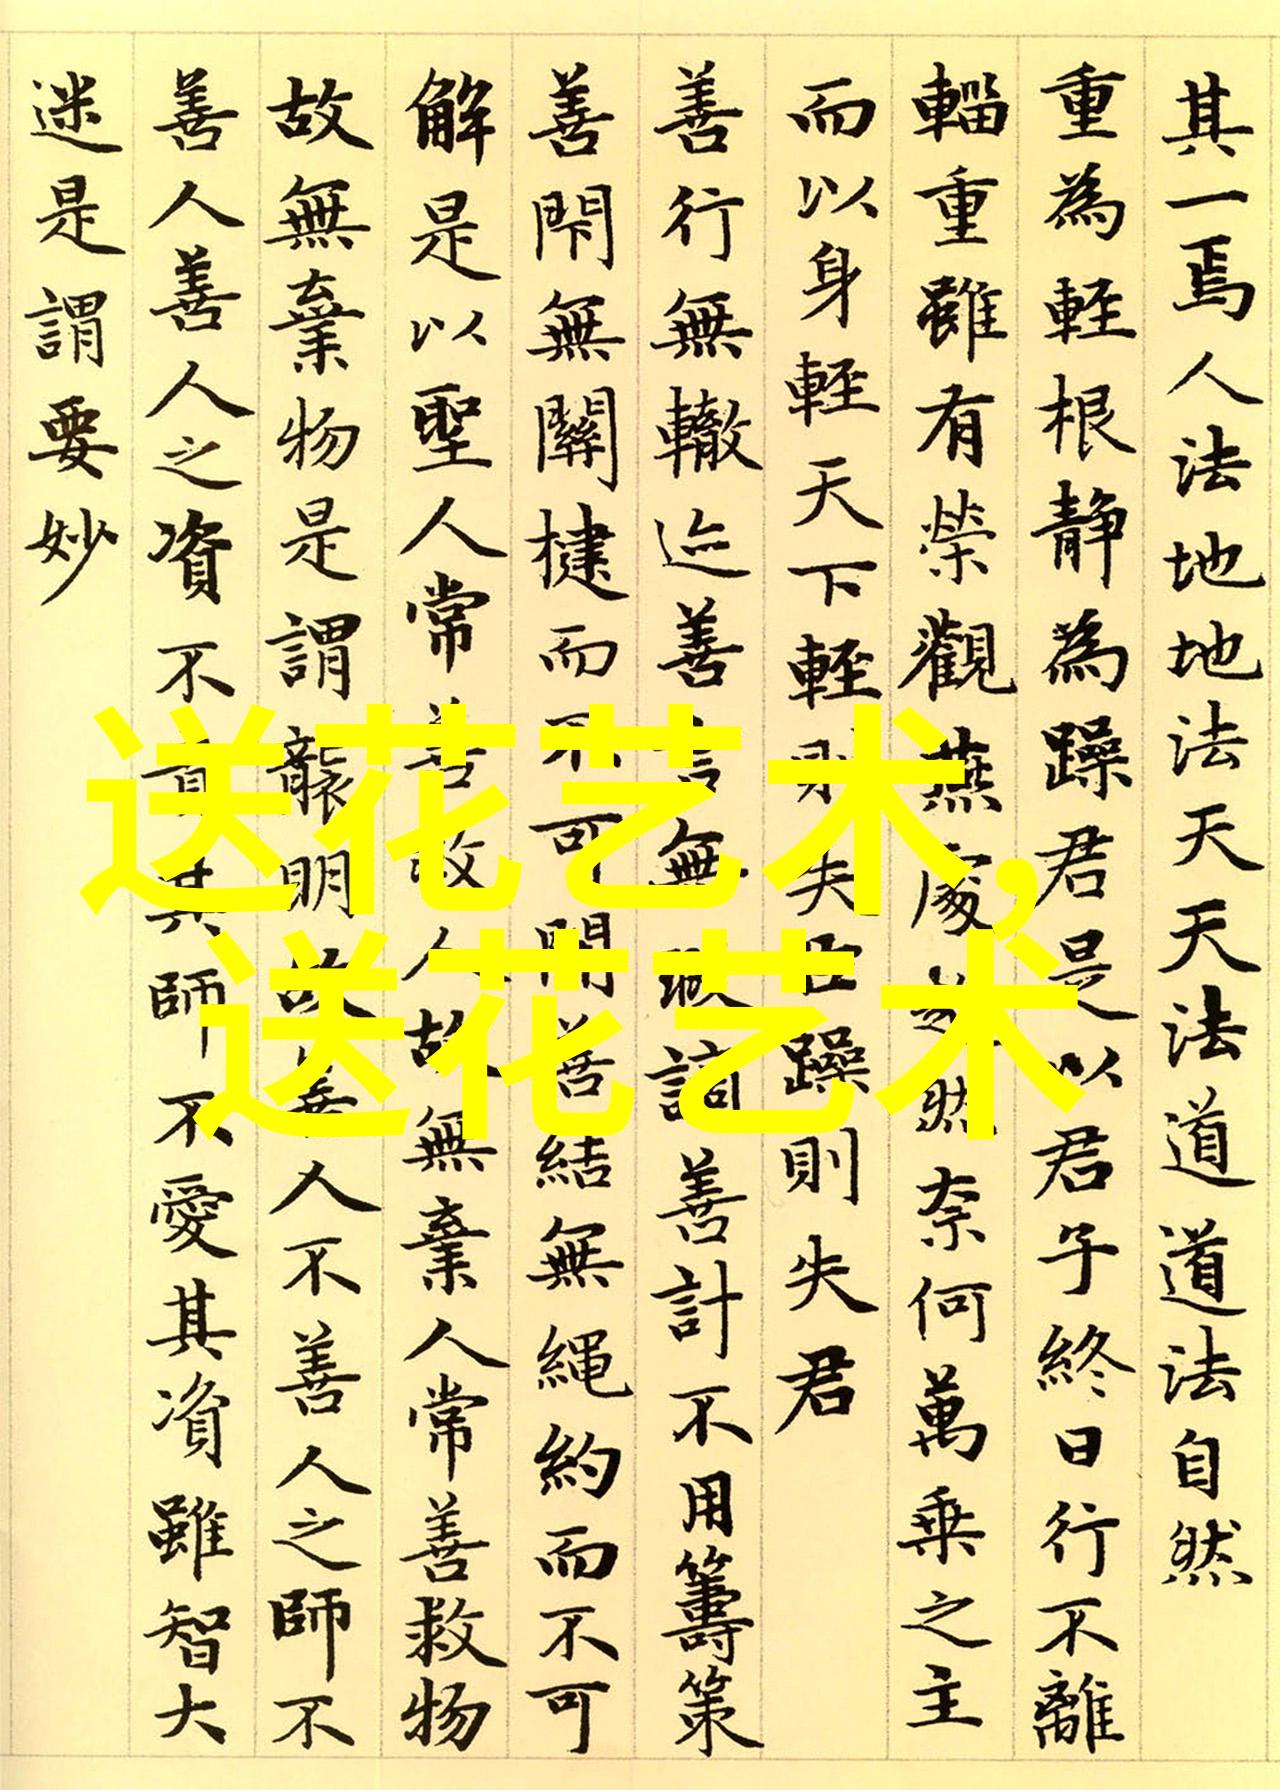 其一焉人法地地法天天法道道法自然
重為輕根静為躁君是以君子終日行不離
輜重雖有榮觀燕處超然奈何萬乗之主
而以身輕天下輕則失臣躁則失君
善行無轍迹善言無瑕謫善計不用籌策
善閇無關揵而不可開善結無繩約而不可
解是以聖人常善救人故無棄人常善救物
故無棄物是謂襲明故善人不善人之師不
善人善人之資不貴其師不愛其資雖智大
迷是謂要妙
送花艺术,
送花艺术